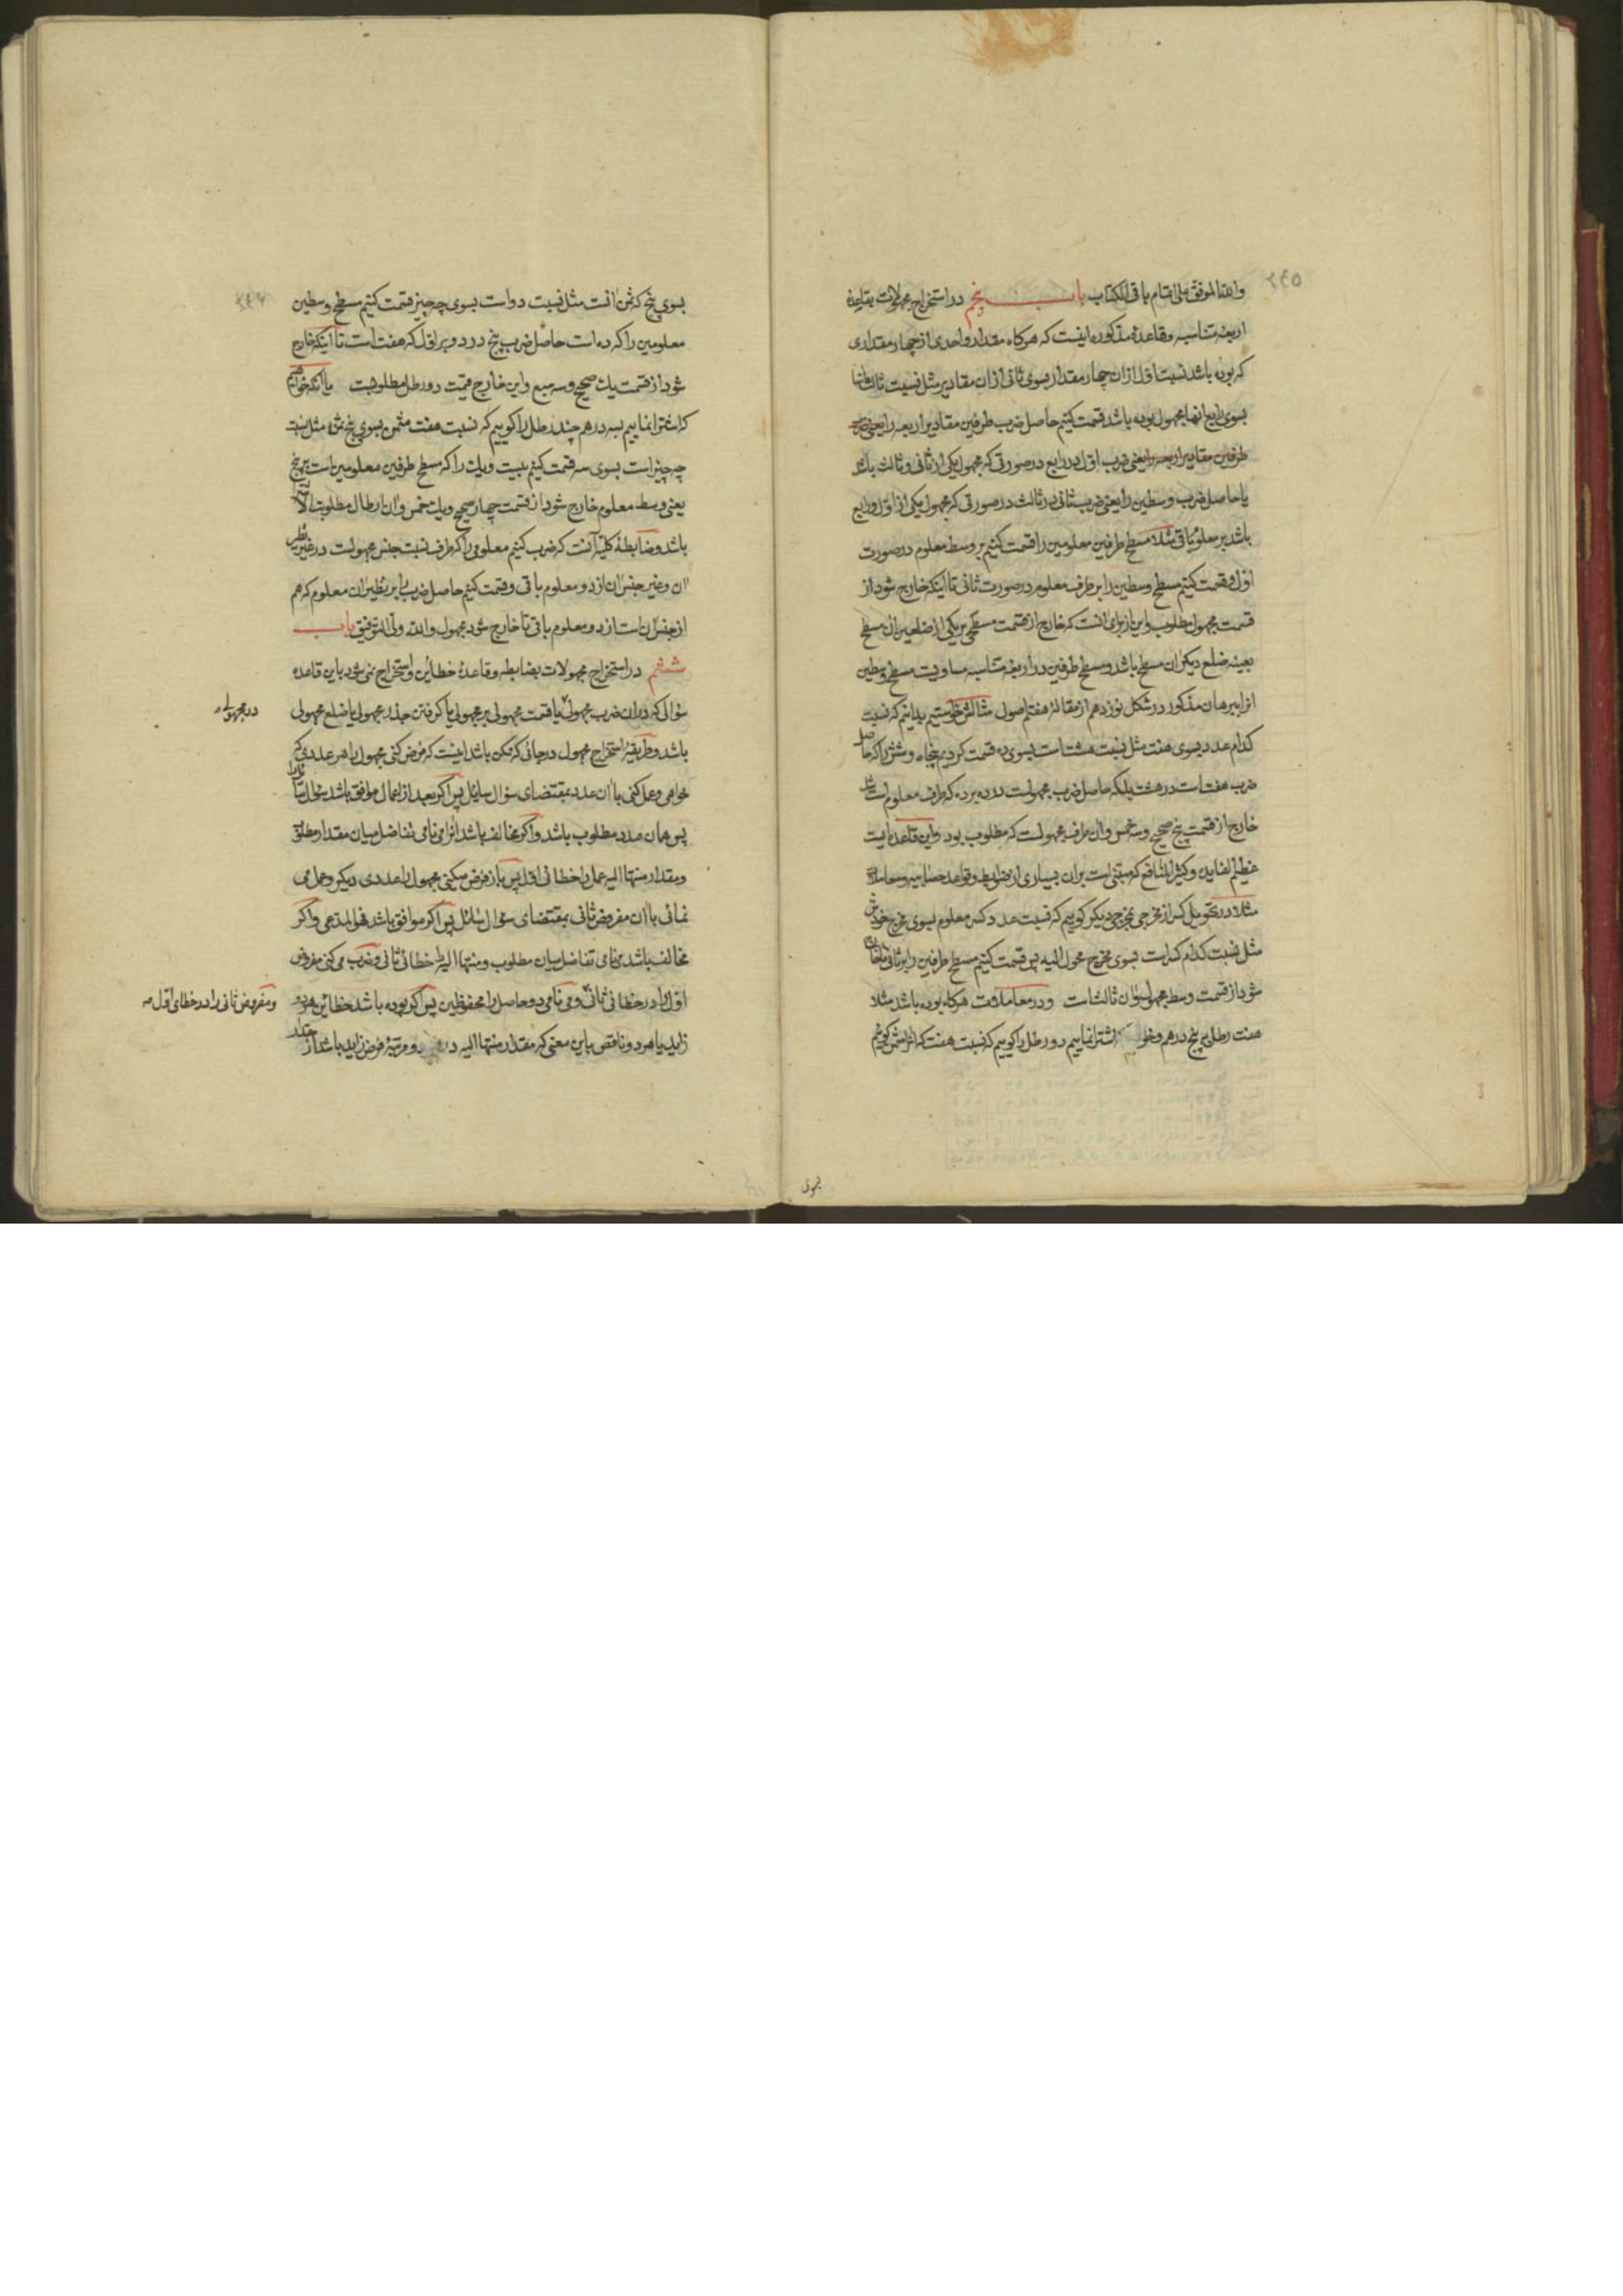 ٢٤٥
والله الموفق علی اتمام باقی الکتاب باب پنجم در استخراج مجهولات بقاعدهٔ
اربعهٔ متناسبه وقاعدهٔ مذکوره اینست که هرکاه مقدار واحدی از چهار مقداری
که بوده باشد نسبت اول ازان چهار مقدار بسوی ثانی ازان مقادیر مثل نسبت ثالث
بسوی رابع انها مجهول بوده باشد قسمت کنیم حاصل ضرب طرفین مقادیر اربعه را یعنی ضرب
طرفین مقادیر اربعه را یعنی ضرب اول در رابع در صورتی که مجهول یکی از ثانی وثالث باشد
یا حاصل ضرب وسطین را یعنی ضرب ثانی در ثالث در صورتی که مجهول یکی از اول ورابع
باشد بر معلوم باقی مثلا مسطح طرفین معلومین را قسمت کنیم بر وسط معلوم در صورت
اول وقسمت کنیم مسطح وسطین را بر طرف معلوم در صورت ثانی تا اینکه خارج شود از
قسمت مجهول مطلوب واین از برای انست که خارج از قسمت مسطحی بر یکی از ضلعین ان مسطح
بعینه ضلع دیکر ان مسطح باشد ومسطح طرفین در اربعهٔ متناسبه مساویست مسطح وسطین
انرا ببرهان مذکور در شکل نوزدهم از مقالهٔ هفتم اصول مثالش خواستیم بدانیم که نسبت
کدام عدد بسوی هفت مثل نسبت هشت است بسوی ده قسمت کردیم پنجاه وشش را که حاصل
ضرب هفت است در هشت بلکه حاصل ضرب مجهولست در ده بر ده که طرف معلوم است شد
خارج از قسمت پنج صحیح وسه خمس وان طرف مجهولست که مطلوب بود واین قاعده ایست
عظیم الفایده وکثیر المنافع که مبتنی است بران بسیاری از ضوابط وقواعد حسابیه ومعاملات
مثلا در تحویل کسر از مخرجی بمخرجی دیکر کوییم که نسبت عدد کسر معلوم بسوی مخرج خودش
مثل نسبت کدام کسر است بسوی مخرج محول الیه پس قسمت کنیم مسطح طرفین را بر ثانی تا خارج
شود از قسمت وسط مجهول وان ثالث است ودر معاملات هرکاه بوده باشد مثلا
هفت رطل به پنج درهم اشترا نماییم دو رطل را کوییم که نسبت هفت که
بسوی
٢٤٦
بسوی پنج که ثمن انست مثل نسبت دو است بسوی چه چیز قسمت کنیم مسطح وسطین
معلومین را که ده است حاصل ضرب پنج در دو بر اول که هفت است تا اینکه خارج
شود از قسمت یک صحیح وسه سبع واین خارج قیمت دو رطل مطلوبست یا انکه خواهیم
که اشترا نماییم بسه درهم چند رطل را کوییم که نسبت هفت مثمن بسوی پنج ثمن مثل نسبت
چه چیز است بسوی سه قسمت کنیم بیست ویک را که مسطح طرفین معلومین است بر پنج
یعنی وسط معلوم خارج شود از قسمت چهار صحیح ویک خمس وان ارطال مطلوبه
باشد وضابطهٔ کلیه آنست که ضرب کنیم معلومی را که طرف نسبت جنس مجهولست در غیر نظیر
ان وغیر جنس ان از دو معلوم باقی وقسمت کنیم حاصل ضرب را بر نظیر ان معلوم که هم
از جنس ان است از دو معلوم باقی تا خارج شود مجهول والله ولی التوفیق باب
ششم در استخراج مجهولات بضابطه وقاعدهٔ خطائین واستخراج نمی شود باین قاعده
سؤالی که دران ضرب مجهول یا قسمت مجهولی بر مجهولی یا کرفتن جذر مجهول یا ضلع مجهولی
در مجهولی
باشد وطریقهٔ استخراج مجهول در جائی که ممکن باشد اینست که فرض کنی مجهول را هر عددی که
خواهی وعمل کنی با ان عدد بمقتضای سؤال سایل پس اکر بعد از اعمال موافق باشد سؤال
پس همان عدد مطلوب باشد واکر مخالف باشد انرا می نامی تفاضل میان مقدار مطلق
ومقدار منتها الیه عمل را خطائی اول پس باز فرض میکنی مجهول را عددی دیکر وعمل می
نمائی با ان مفروض ثانی بمقتضای سؤال سائل پس اکر موافق باشد فهو المدعی واکر
مخالف باشد می نامی تفاضل میان مطلوب ومنتها الیه را خطائی ثانی وضرب می کنی مفروض
اول را در خطائی ثانی ومی نامی دو حاصل را محفوظین پس اکر بوده باشد خطائین هر دو
ومفروض ثانی را در خطای اول
زاید یا هر دو ناقص باین معنی که مقدار منتها الیه در دو مرتبهٔ فرض زاید باشد از